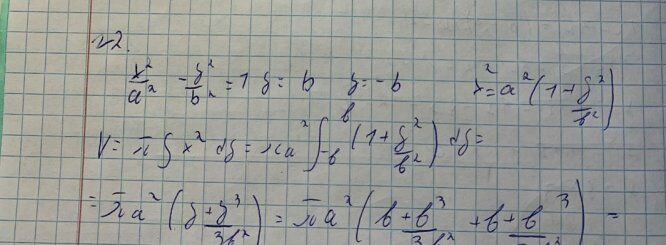 №2.
x²/a² - y²/b² = 1 y = b y = -b x² = a²(1 + y²/b²)
V = π∫x² dy = πa² ∫_{-b}^{b} (1 + y²/b²) dy =
= πa² (y + y³/3b²) = πa² (b + b³/3b² + b + b³/3b²) =